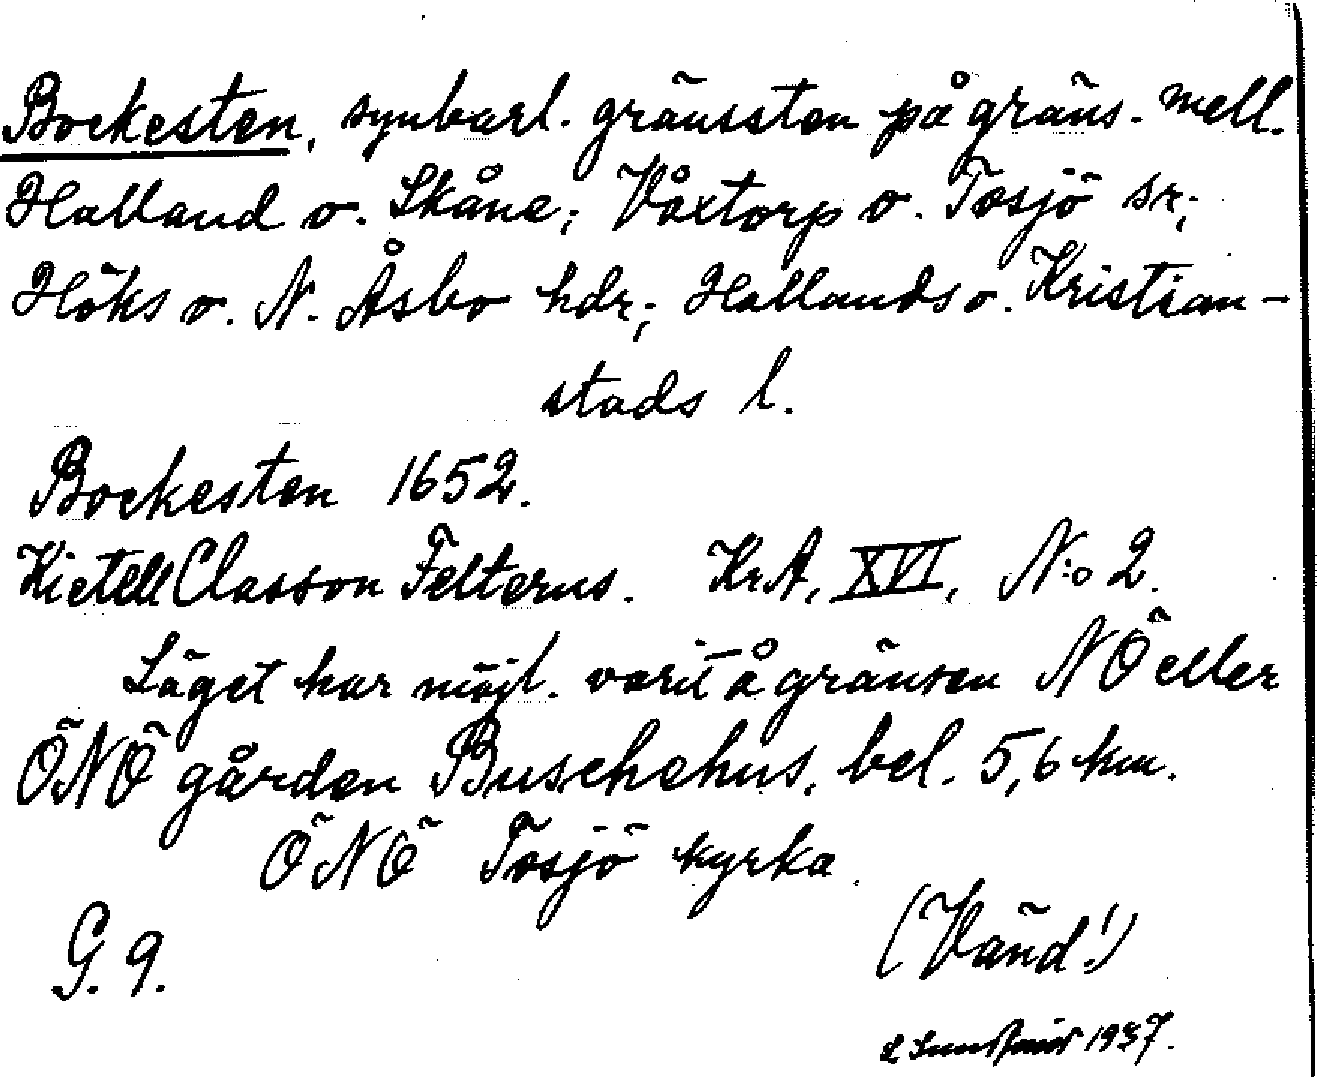 Bockesten, synbarl. gränssten på gräns. mell.
Halland o. Skåne; Våxtorp o. Tåsjö sr;
Höks o. N. Åsbo hdr; Hallands o. Kristian-
stads l.
Bockesten 1652.
Kietell Classon Felterus. KrA, XVI, N:o 2.
Läget har möjl. varit å gränsen NÖ eller
ÖNÖ gården Buschehus, bel. 5,6 km.
ÖNÖ Tosjö kyrka.
(Vänd!)
G. 9.
1937.